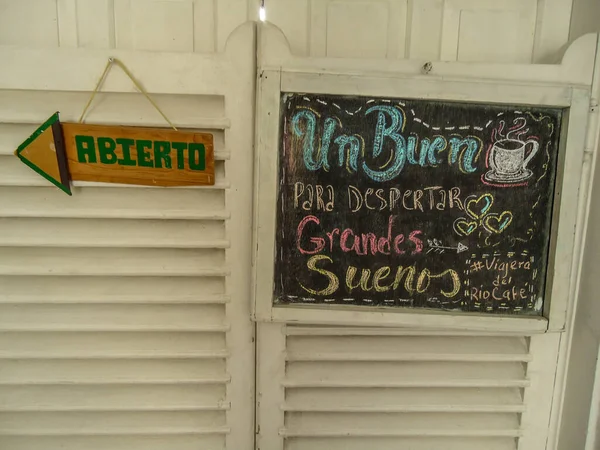 ABIERTO
Un Buen
PARA DESPERTAR
Grandes
Suenos
#"Viajera
del
Rio Café"